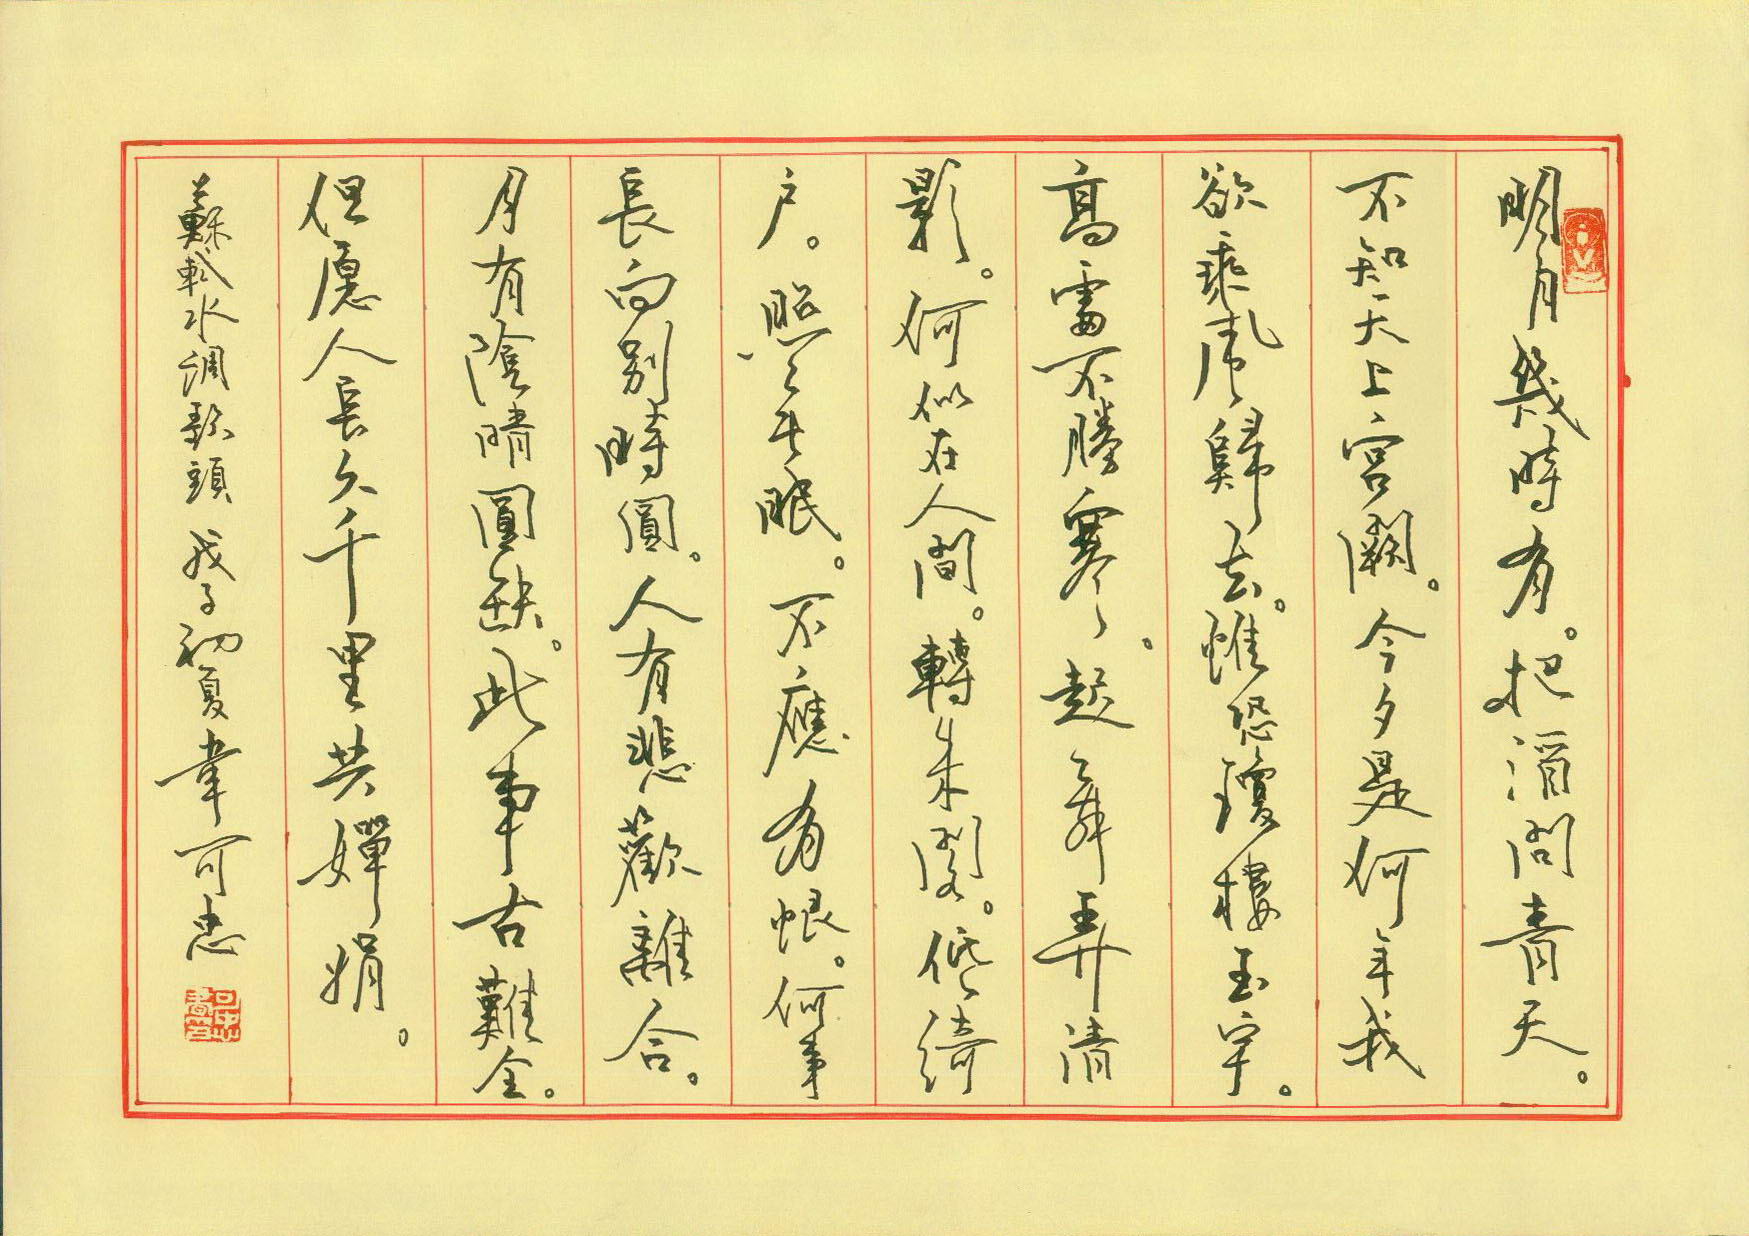 明月幾時有。把酒問青天。
不知天上宮闕。今夕是何年我
欲乘風歸去。惟恐瓊樓玉宇。
高處不勝寒。起舞弄清
影。何似在人間。轉朱閣。低綺
戶。照無眠。不應有恨。何事
長向別時圓。人有悲歡離合。
月有陰晴圓缺。此事古難全。
但愿人長久千里共嬋娟。
蘇軾水調歌頭 戊子初夏韋可忠